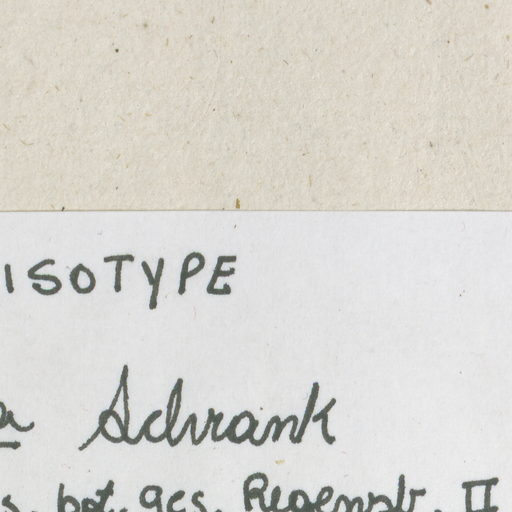 ISOTYPE
a Schrank
s. bot. ges. Regensb. II